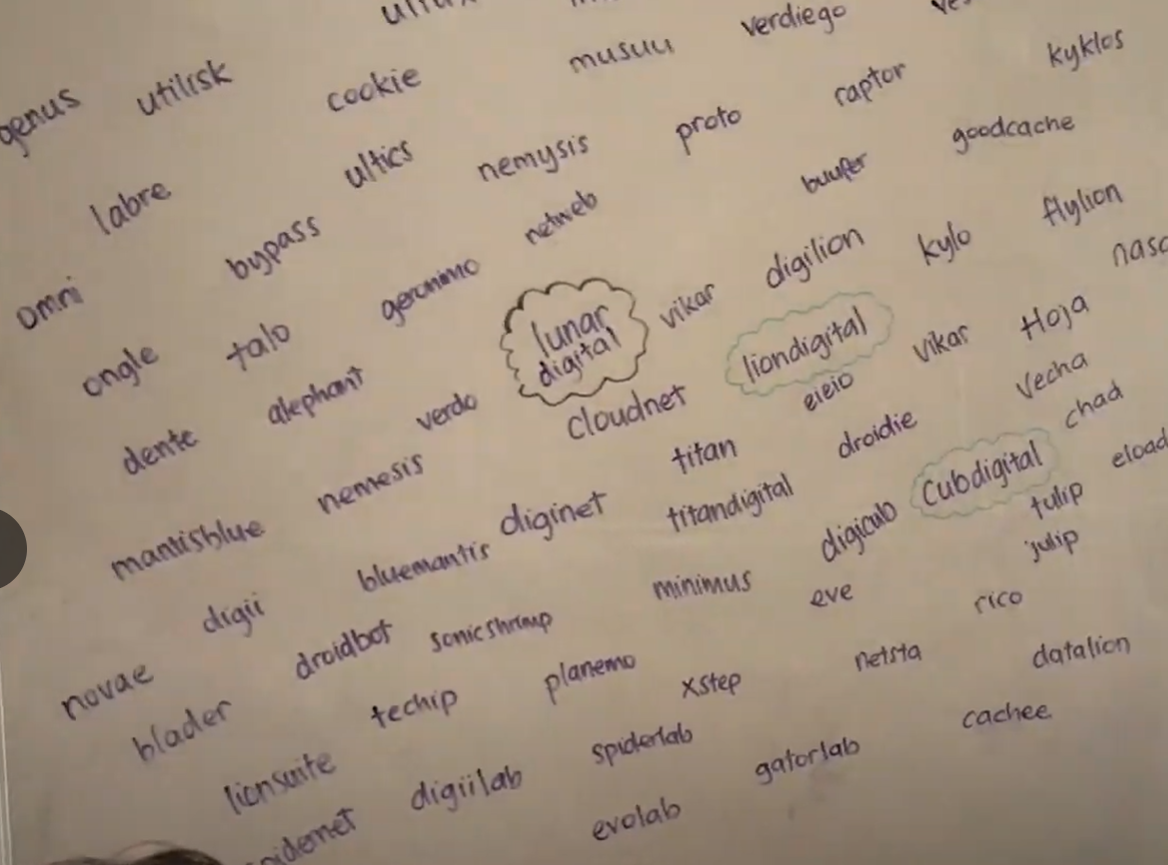 verdiego
musuu
kyklos
cookie
utilisk
genus
raptor
proto
goodcache
nemysis
ultics
labre
buufer
netweb
bypass
flylion
kylo
digilion
geronimo
omni
vikar
lunar
digital
liondigital
vikar
Hoja
talo
ongle
alephant
verdo
cloudnet
eieio
Vecha
chad
dente
nemesis
titan
droidie
Cubdigital
eload
mantisblue
diginet
titandigital
digicub
tulip
julip
bluemantis
digii
minimus
eve
rico
droidbot
sonicshrimp
novae
planemo
netsta
datalion
blader
techip
xstep
cachee
lionsuite
spiderlab
gatorlab
digiilab
evolab